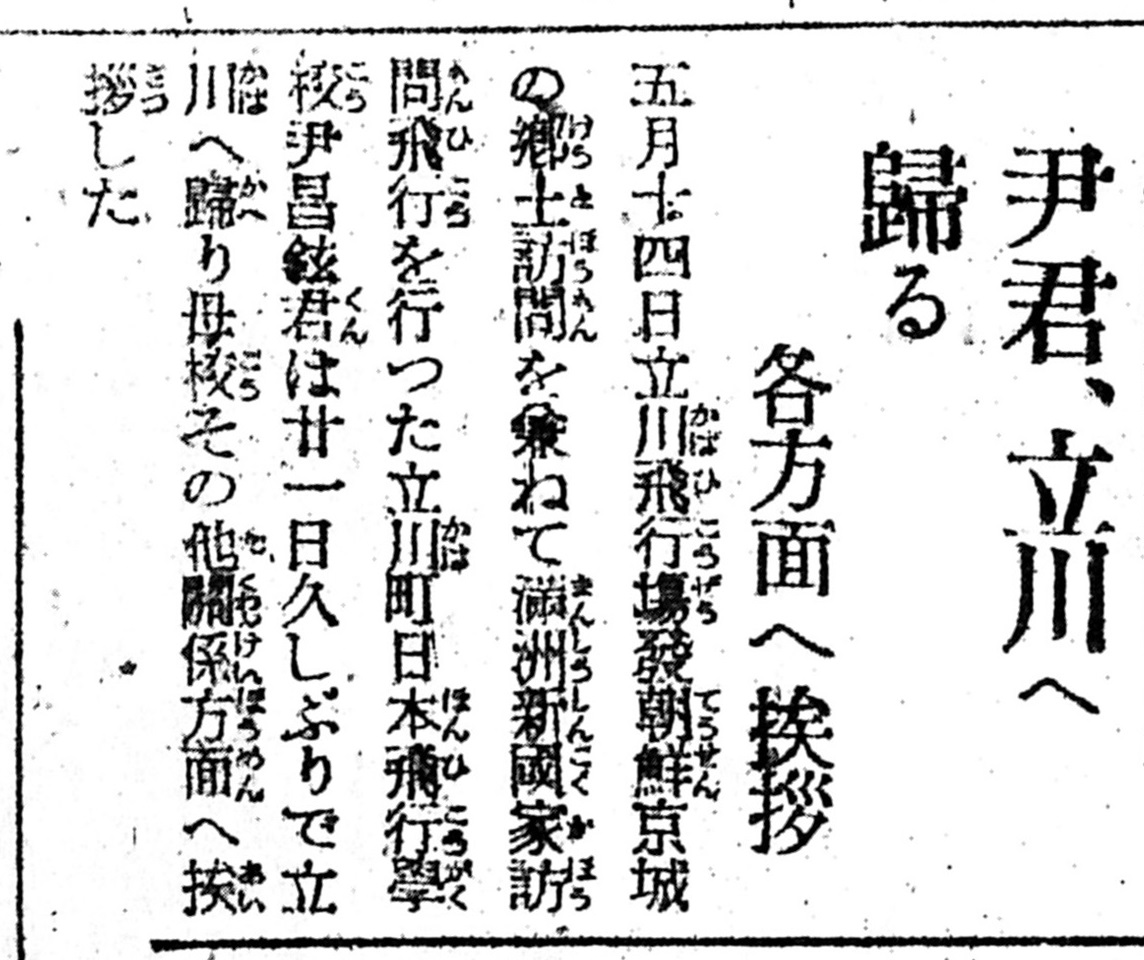 尹君、立川へ
歸る
各方面へ挨拶
五月十四日立川飛行場發朝鮮京城
の鄕土訪問を兼ねて滿洲新國家訪
問飛行を行つた立川町日本飛行學
校尹昌鉉君は廿一日久しぶりで立
川へ歸り母校その他關係方面へ挨
拶した